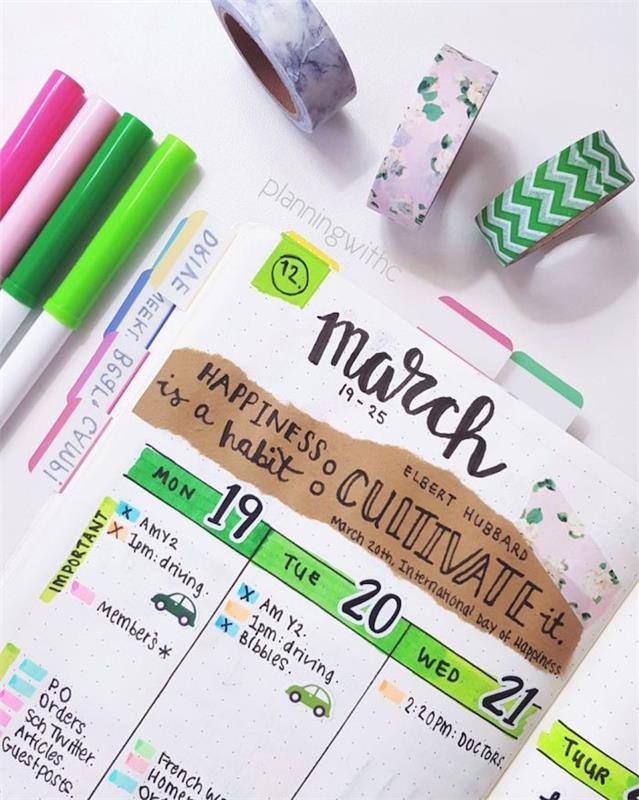 planningwithc
DRIVE
WEEK!
Bear,
CAMP!
12.
march
19-25
HAPPINESS
is a habit:
CULTIVATE it.
ELBERT HUBBARD
March 20th, International Day of Happiness.
MON 19
IMPORTANT
x AM Y2
x 1pm: driving.
Members*
P.O
Orders.
Sch Twitter.
Articles.
Guestposts.
TUE 20
x AM Y2.
1pm: driving.
x Bibbles.
French
WED 21
2:20PM: DOCTORS.
TUUR